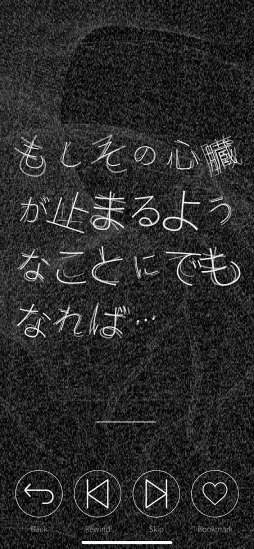 もしその心臓
が止まるよう
なことにでも
なれば…
Back
Rewind
Skip
Bookmark